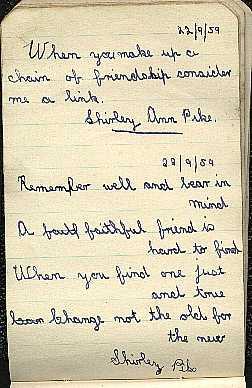 22/9/59
When you make up a
chain of friendship consider
me a link.
Shirley Ann Pike.
29/9/59
Remember well and bear in
mind
A faithful friend is
hard to find
When you find one just
and true
Change not the old for
the new
Shirley Pike